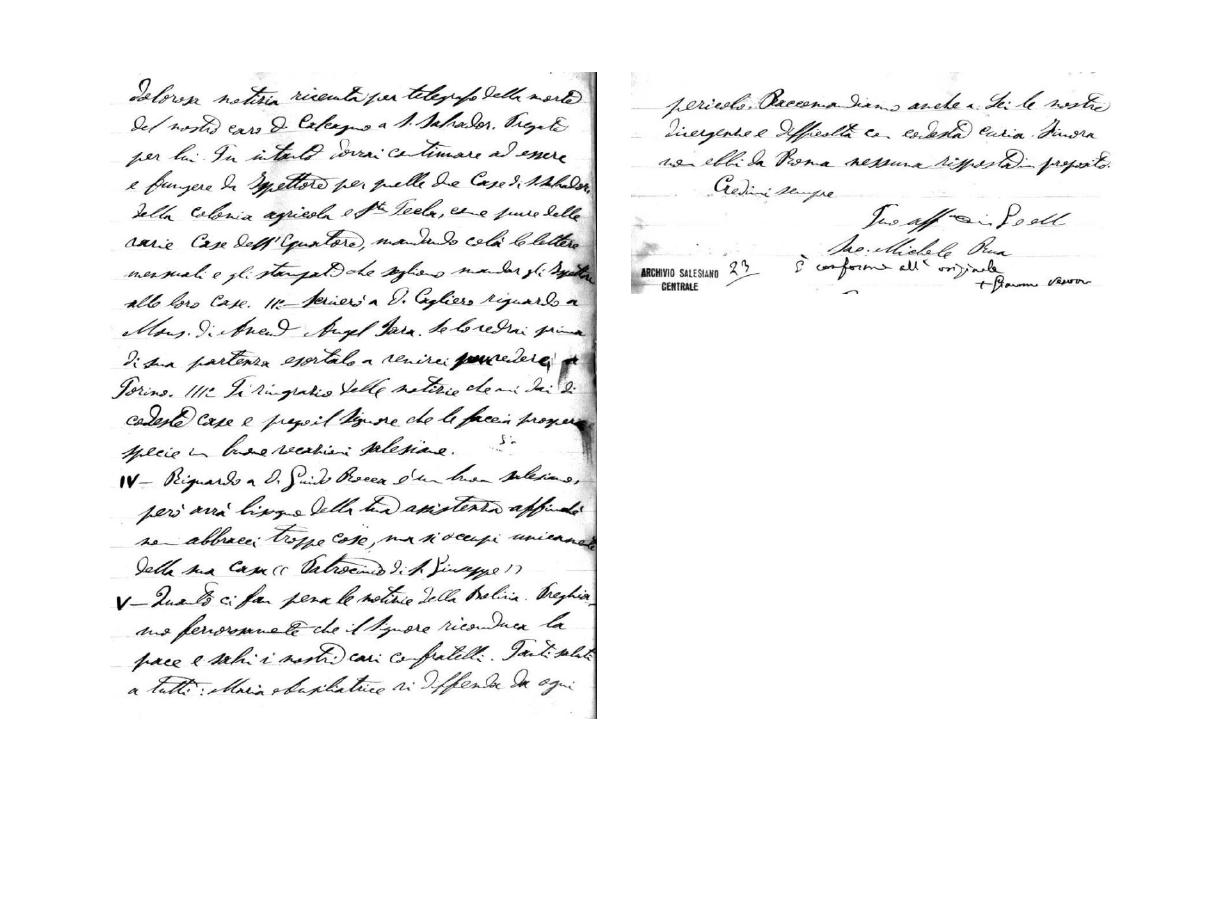 dolorosa notizia ricevuta per telegrafo della morte
del nostro caro D. Calcagno a S. Salvador. Pregate
per lui. Tu intanto dovrai continuare ad essere
e fungere da Ispettore per quelle due Case di S. Salvador,
della colonia agricola e Sta Tecla, come pure delle
varie Case dell'Equatore, mandando colà le lettere
mensuali e gli stampati che sogliono mandar gli Ispettori
alle loro Case. II.- Scriverò a D. Cagliero riguardo a
Mons. di Ancud Angel Jara. Se lo vedrai prima
di sua partenza esortalo a venirci a
Torino. III.- Ti ringrazio delle notizie che mi dai di
codeste Case e prego il Signore che le faccia prosperare
specie in buone vocazioni salesiane.
IV- Riguardo a D. Guido Rocca è un buon salesiano,
però avrà bisogno della tua assistenza affinchè
non abbracci troppe cose, ma si occupi unicamente
della sua Casa (( Patrocinio di S. Giuseppe ))
V- Quanto ci fan pena le notizie della Bolivia. Preghia-
mo fervorosamente che il Signore riconduca la
pace e salvi i nostri cari confratelli. Tanti saluti
a tutti: Maria Ausiliatrice vi diffenda da ogni
pericolo. Raccomandiamo anche a Lei le nostre
divergenze e difficoltà con codesta Curia. Finora
non ebbi da Roma nessuna risposta in proposito.
Credimi sempre
Tuo aff in
Sac. Michele Rua
È conforme all'originale
ARCHIVIO SALESIANO 23
CENTRALE